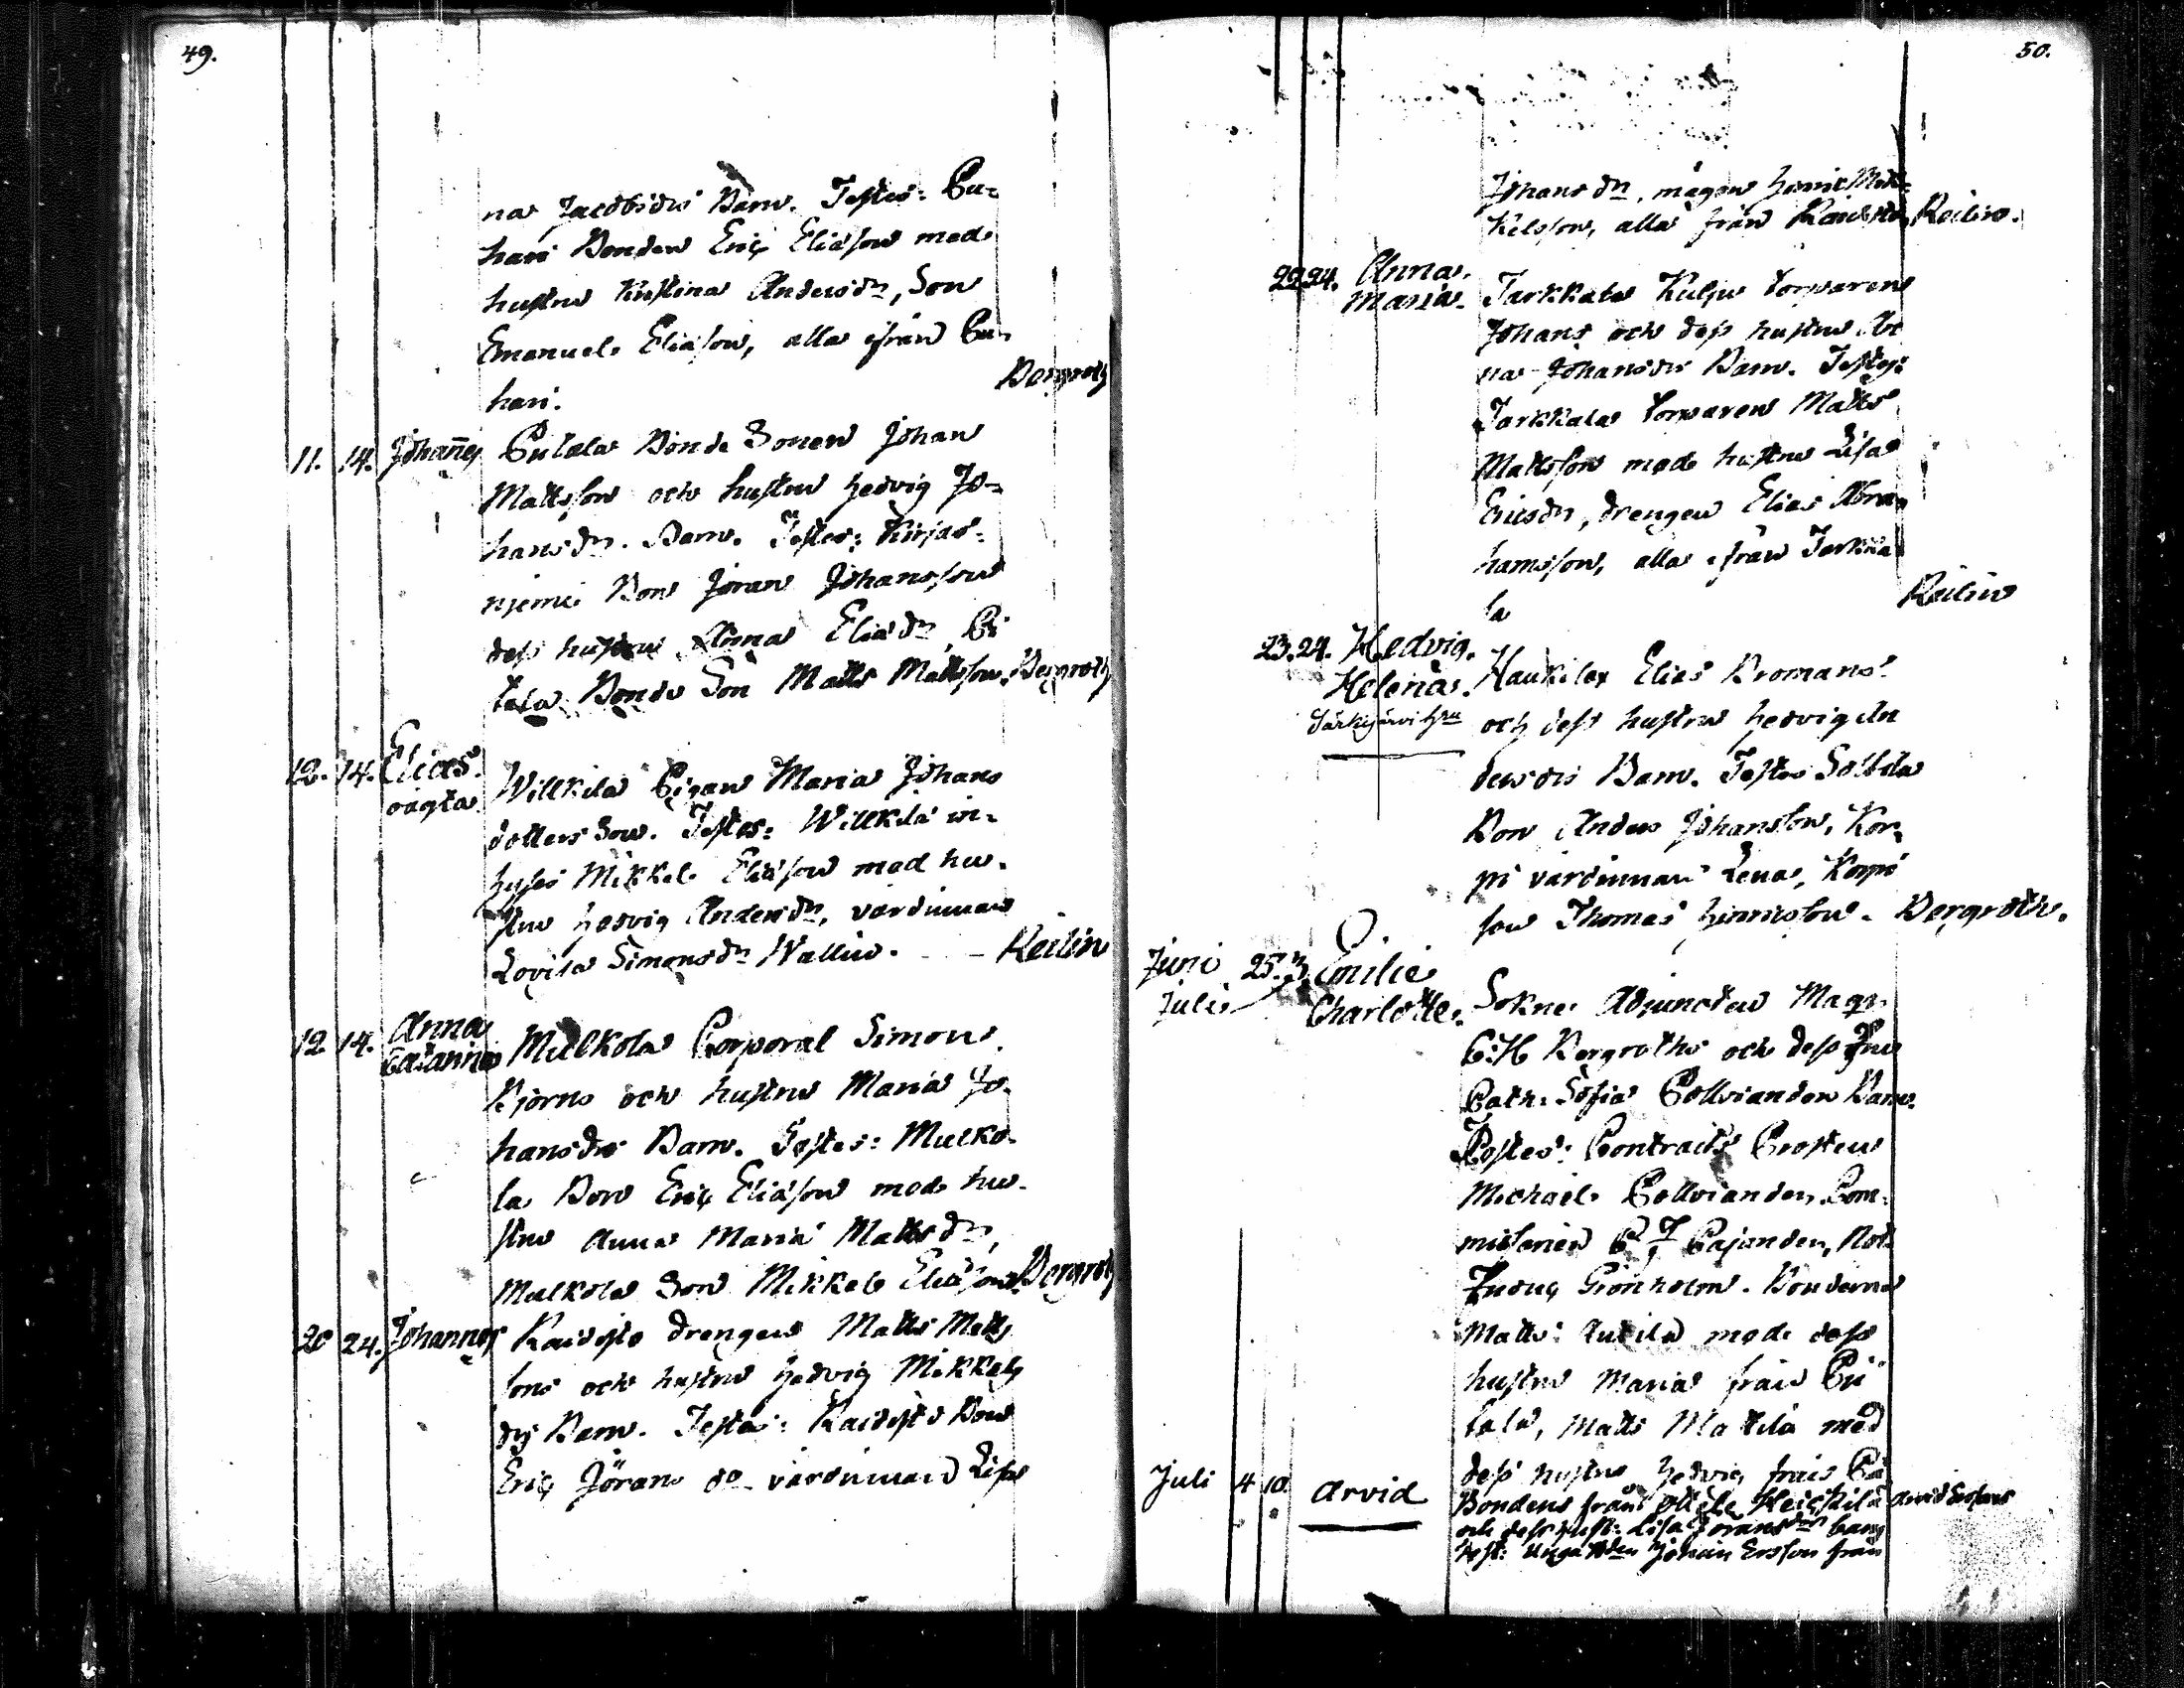 49.
na Jacobsdrs Barn. Testes: Pu-
hari Bonden Eric Eliasson med
hustru Kristina Andersdr, Son
Emanuel Eliasson, alla från Pu-
hari. Bergroth
11. 14. Johannes Putala Bonde Sonen Johan
Mattsson och hustru Hedvig Jo-
hansdrs. Barn. Testes:
niemi Bon Jöran Johansson
dess hustru Anna Eliedr, Pu
tala Bonde Son Matts Mattsson. Bergroth
12. 14. Elias. Willkila Pigan Maria Johans
oägta. dotters Son. Testes: Willkila in-
hyses Mikkel Eliasson med hu-
stru Hedvig Andersdr, värdinnan
Lovisa Simonsdr Wallin. - - Keilin
12. 14. Anna Mulkola Corporal Simon
Catarina Björns och hustru Maria Jo-
hansdrs Barn. Testes: Mulko-
la Bon Eric Eliasson med hu-
stru Anna Maria Mattsdr,
Mulkola Son Mikkel Eliasson. Bergroth
20 24. Johannes Raidisto drengens Matts Matts
sons och hustru Hedvig Mikkels
drs Barn. Testes: Raidisto Bon
Eric Jöran do värdinnan Lisa
50.
Johansdr, mågen Henric Mik-
kelsson, alla från Raidisto, Keilin.
22. 24. Anna
Maria. Tarkkala Torparen
Johans och dess hustru An
na Johansdrs Barn. Testes:
Tarkkala Torparen Matts
Mattsson med hustru Lisa
Ericsdr, drengen Elias Abra-
hamsson, alla från Tarkka
la Keilin
23. 24. Hedvig
Helena. Elias Bromans
Särkijärvi och dess hustru Hedvig An
dersdrs Barn. Testes
Bon Anders Johansson, Kor-
pi värdinnan Lena, Korpi
son Thomas Hinricsson. Bergroth.
Juni 25. 3. Emilie
Juli Charlotte. Sokne Adjuncten Magr.
C: H Bergroths och dess Fru
Cath: Sofia Polviander Barn.
Testes: Contracts Prosten
Michael Polviander, Com-
misarien Cajander, Not.
Grönholm. Bönderna
Matts med dess
hustru Maria från Pu
tala, Matts Mattila med
dess hustru Hedvig från
Juli 4 10. Arvid Bondens från Heickilä Arvid
och dess hust: Lisa Joransdrs barn
test: Unga Johan Ersson från